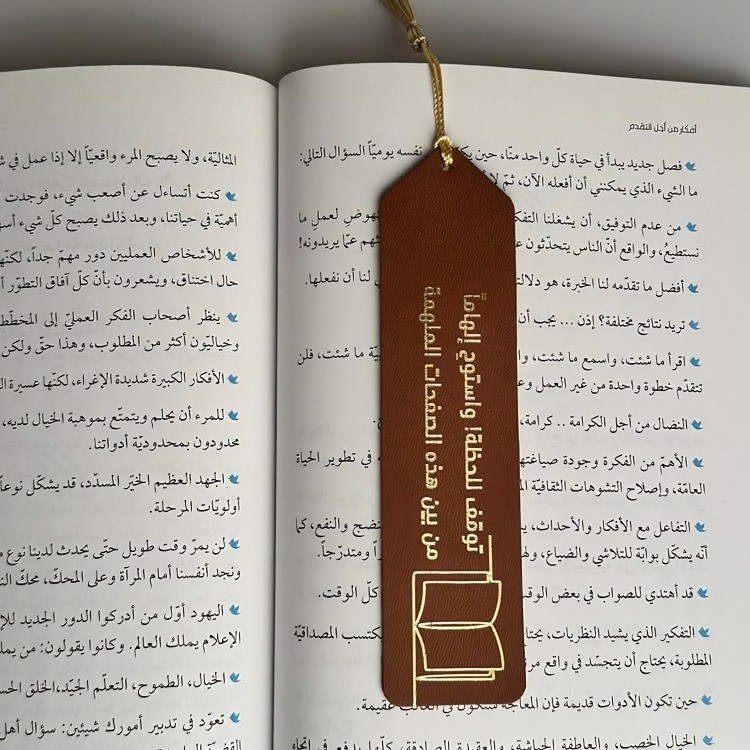 أفكار من أجل التقدم
فصل جديد يبدأ في حياة كلّ واحد منّا، حين نفسه يوميّاً السؤال التالي:
ما الشيء الذي يمكنني أن أفعله الآن، ثمّ
من عدم التوفيق، أن يشغلنا التفك النهوضِ لعملِ ما
نستطيعُ، والواقع أنّ الناس يتحدّثون عمّا يريدونه!
أفضل ما تقدّمه لنا الخبرة، هو دلالت لنا أن نفعلها.
تريد نتائج مختلفة؟ إذن ... يجب أن
اقرأ ما شئت، واسمع ما شئت، وا ما شئت، فلن
تتقدّم خطوة واحدة من غير العمل و
النضال من أجل الكرامة .. كرامة،
الأهمّ من الفكرة وجودة صياغتها في تطوير الحياة
العامّة، وإصلاح التشوهات الثقافيّة
التفاعل مع الأفكار والأحداث، والنفع، كما
أنّه يشكّل بوابة للتلاشي والضياع، ومتدرّجاً.
قد أهتدي للصواب في بعض الوقت كلّ الوقت.
التفكير الذي يشيد النظريات، يحتا يكتسب المصداقيّة
المطلوبة، يحتاج أن يتجسّد في واقع
حين تكون الأدوات قديمة فإن ستكون في الغالب عقيمة.
الخيال الخصب، والعاطفة الجياشة، والعقيدة الصادقة، كلّها يدفع في اتجاه
توقف للحظة! واستوحِ إلهاماً
من بين هذه الصفحات الملهمة
المثاليّة، ولا يصبح المرء واقعيّاً إلا إذا عمل في
كنت أتساءل عن أصعب شيء، فوجدت
أهميّة في حياتنا، وبعد ذلك يصبح كلّ شيء
للأشخاص العمليين دور مهمّ جداً، لكنّه
حال اختناق، ويشعرون بأنّ كلّ آفاق التطوّر
ينظر أصحاب الفكر العمليّ إلى المخطّط
وخياليّون أكثر من المطلوب، وهذا حقّ ولكن
الأفكار الكبيرة شديدة الإغراء، لكنّها عسيرة
للمرء أن يحلم ويتمتّع بموهبة الخيال لديه،
محدودون بمحدوديّة أدواتنا.
الجهد العظيم الخيّر المسدّد، قد يشكّل نوعاً
أولويّات المرحلة.
لن يمرّ وقت طويل حتّى يحدث لدينا نوع
ونجد أنفسنا أمام المرآة وعلى المحكّ، محكّ
اليهود أوّل من أدركوا الدور الجديد
الإعلام يملك العالم. وكانوا يقولون: من
الخيال، الطموح، التعلّم الجيّد، الخلق
تعوّد في تدبير أمورك شيئين: سؤال أهل